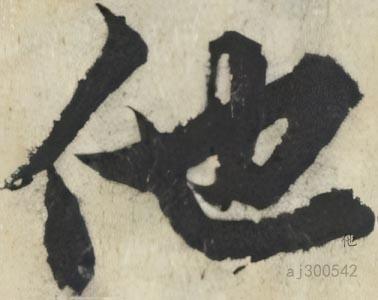 他
他
aj300542